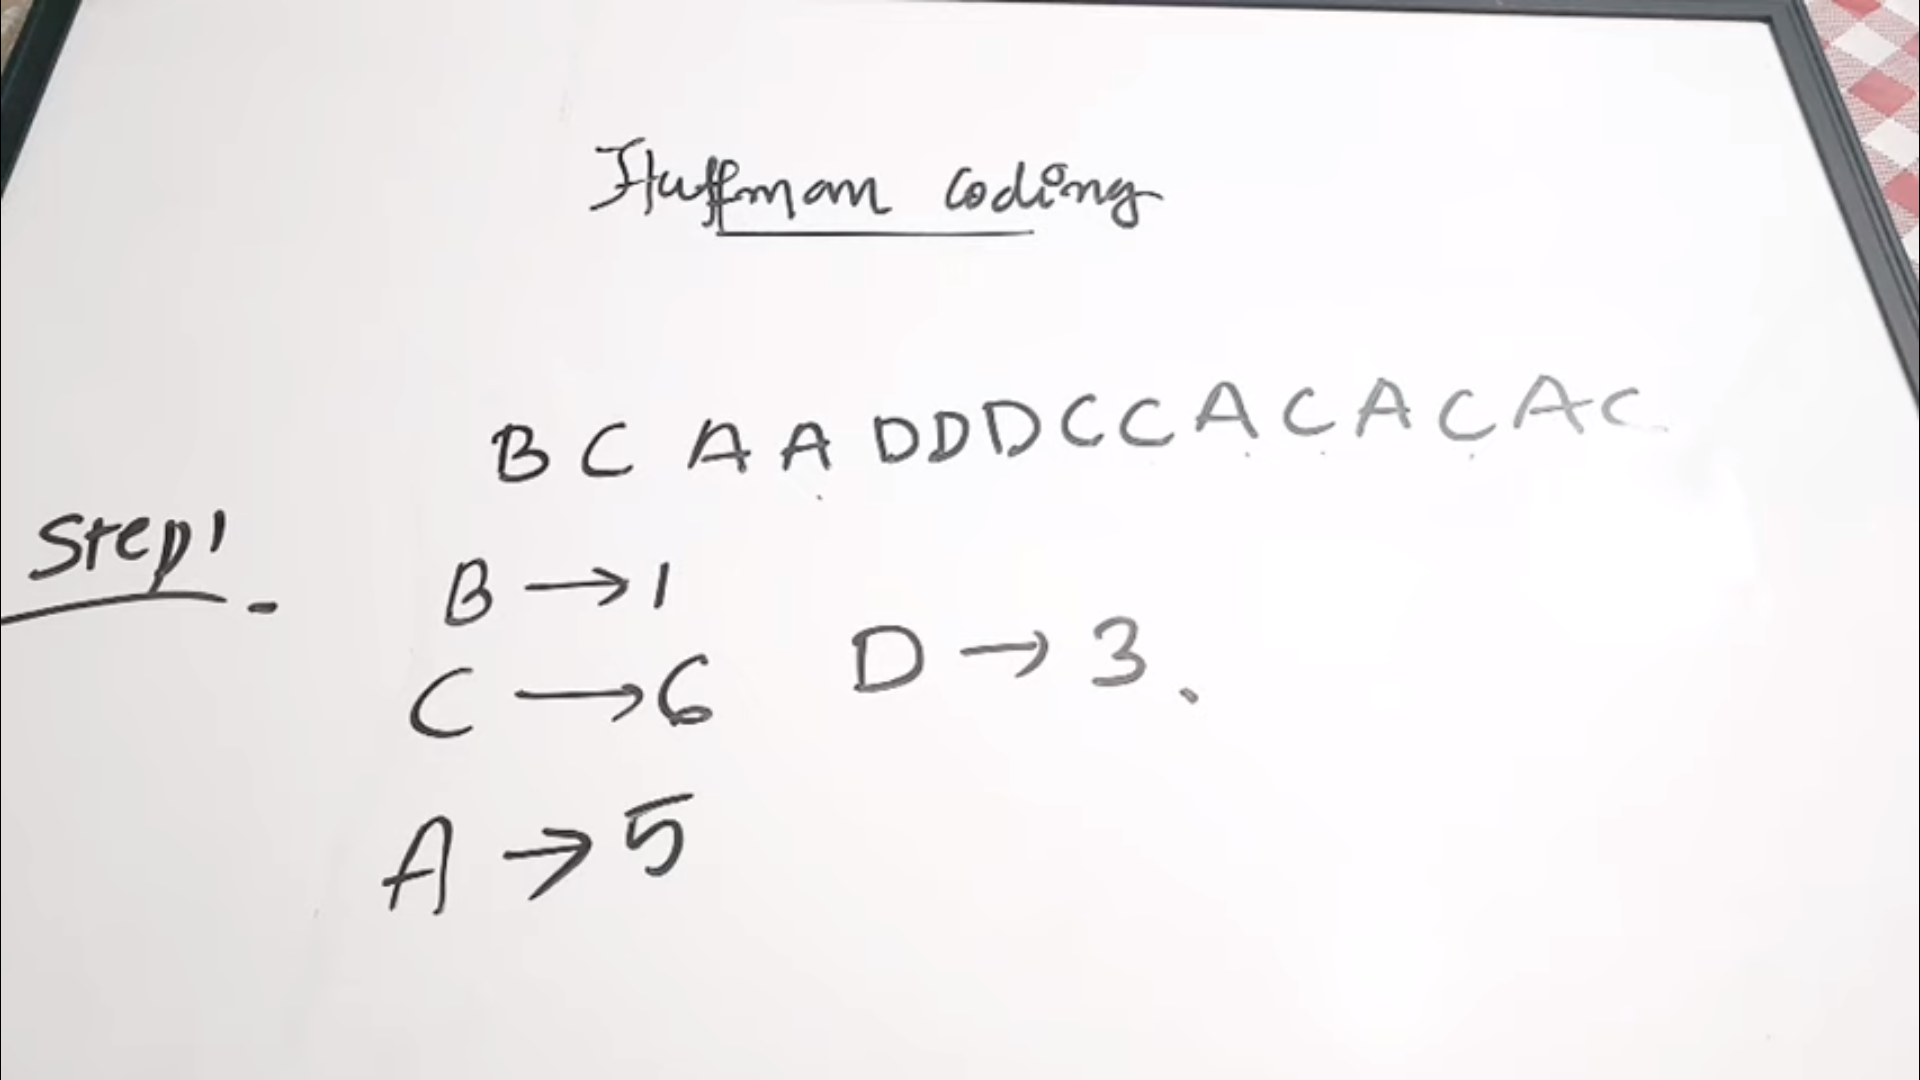 Huffman coding
B C A A D D D C C A C A C A C
Step 1
B → 1
C → 6
D → 3.
A → 5